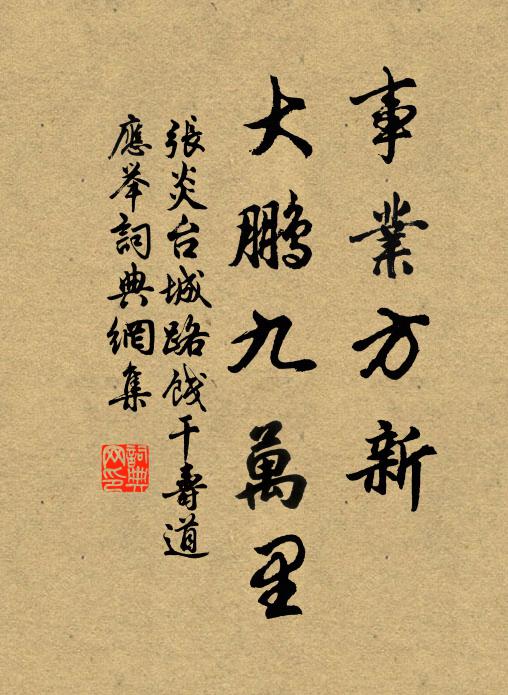 事業方新
大鹏九萬里
張炎台城路饯干壽道
應举詞典網集
詞典网印